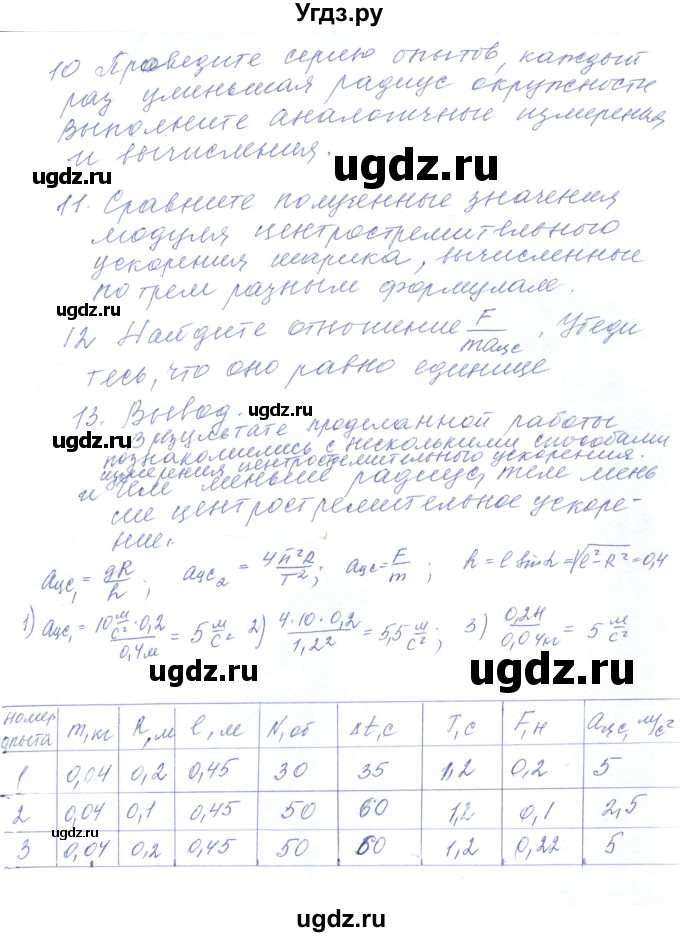 Угдз.ру
10 Проведите серию опытов, каждый
раз уменьшая радиус окружности
Выполните аналогичные измерения
и вычисления.
ugdz.ru
ugdz.ru
11. Сравните полученные значения
модуля центростремительного
ускорения шарика, вычисленные
по трем разным формулам.
ugdz.ru
12 Найдите отношение F/maцс. Убеди
тесь, что оно равно единице
13. Вывод.
ugdz.ru
В результате проделанной работы
познакомились с несколькими способами
измерения центростремительного ускорения.
и чем меньше радиус, тем мень
ше центростремительное ускоре-
ние.
ugdz.ru
ugdz.ru
aцс₁ = gR/h; aцс₂ = 4π²R/T²; aцс = F/m; h = l sin h = √l²-R² = 0,4
1) aцс₁ = 10 м/с² · 0,2 / 0,4 м = 5 м/с² 2) 4·10·0,2 / 1,2² = 5,5 м/с²; 3) 0,2Н / 0,04кг = 5 м/с²
ugdz.ru
ugdz.ru
Номер опыта m, кг R, м l, м N, об Δt, с T, с F, н aцс, м/с²
1 0,04 0,2 0,45 30 35 1,2 0,2 5
2 0,04 0,1 0,45 50 60 1,2 0,1 2,5
ugdz.ru
3 0,04 0,2 0,45 50 60 1,2 0,22 5
ugdz.ru
ugdz.ru